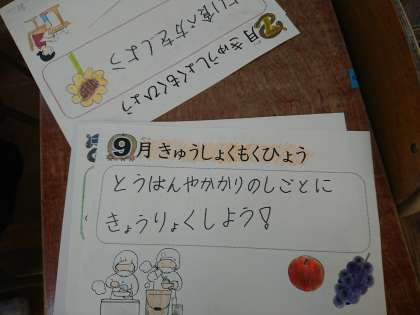 月きゅうしょくもくひょう
よい食べ方をしよう
9月 きゅうしょくもくひょう
とうはんやかかりのしごとに
きょうりょくしよう!